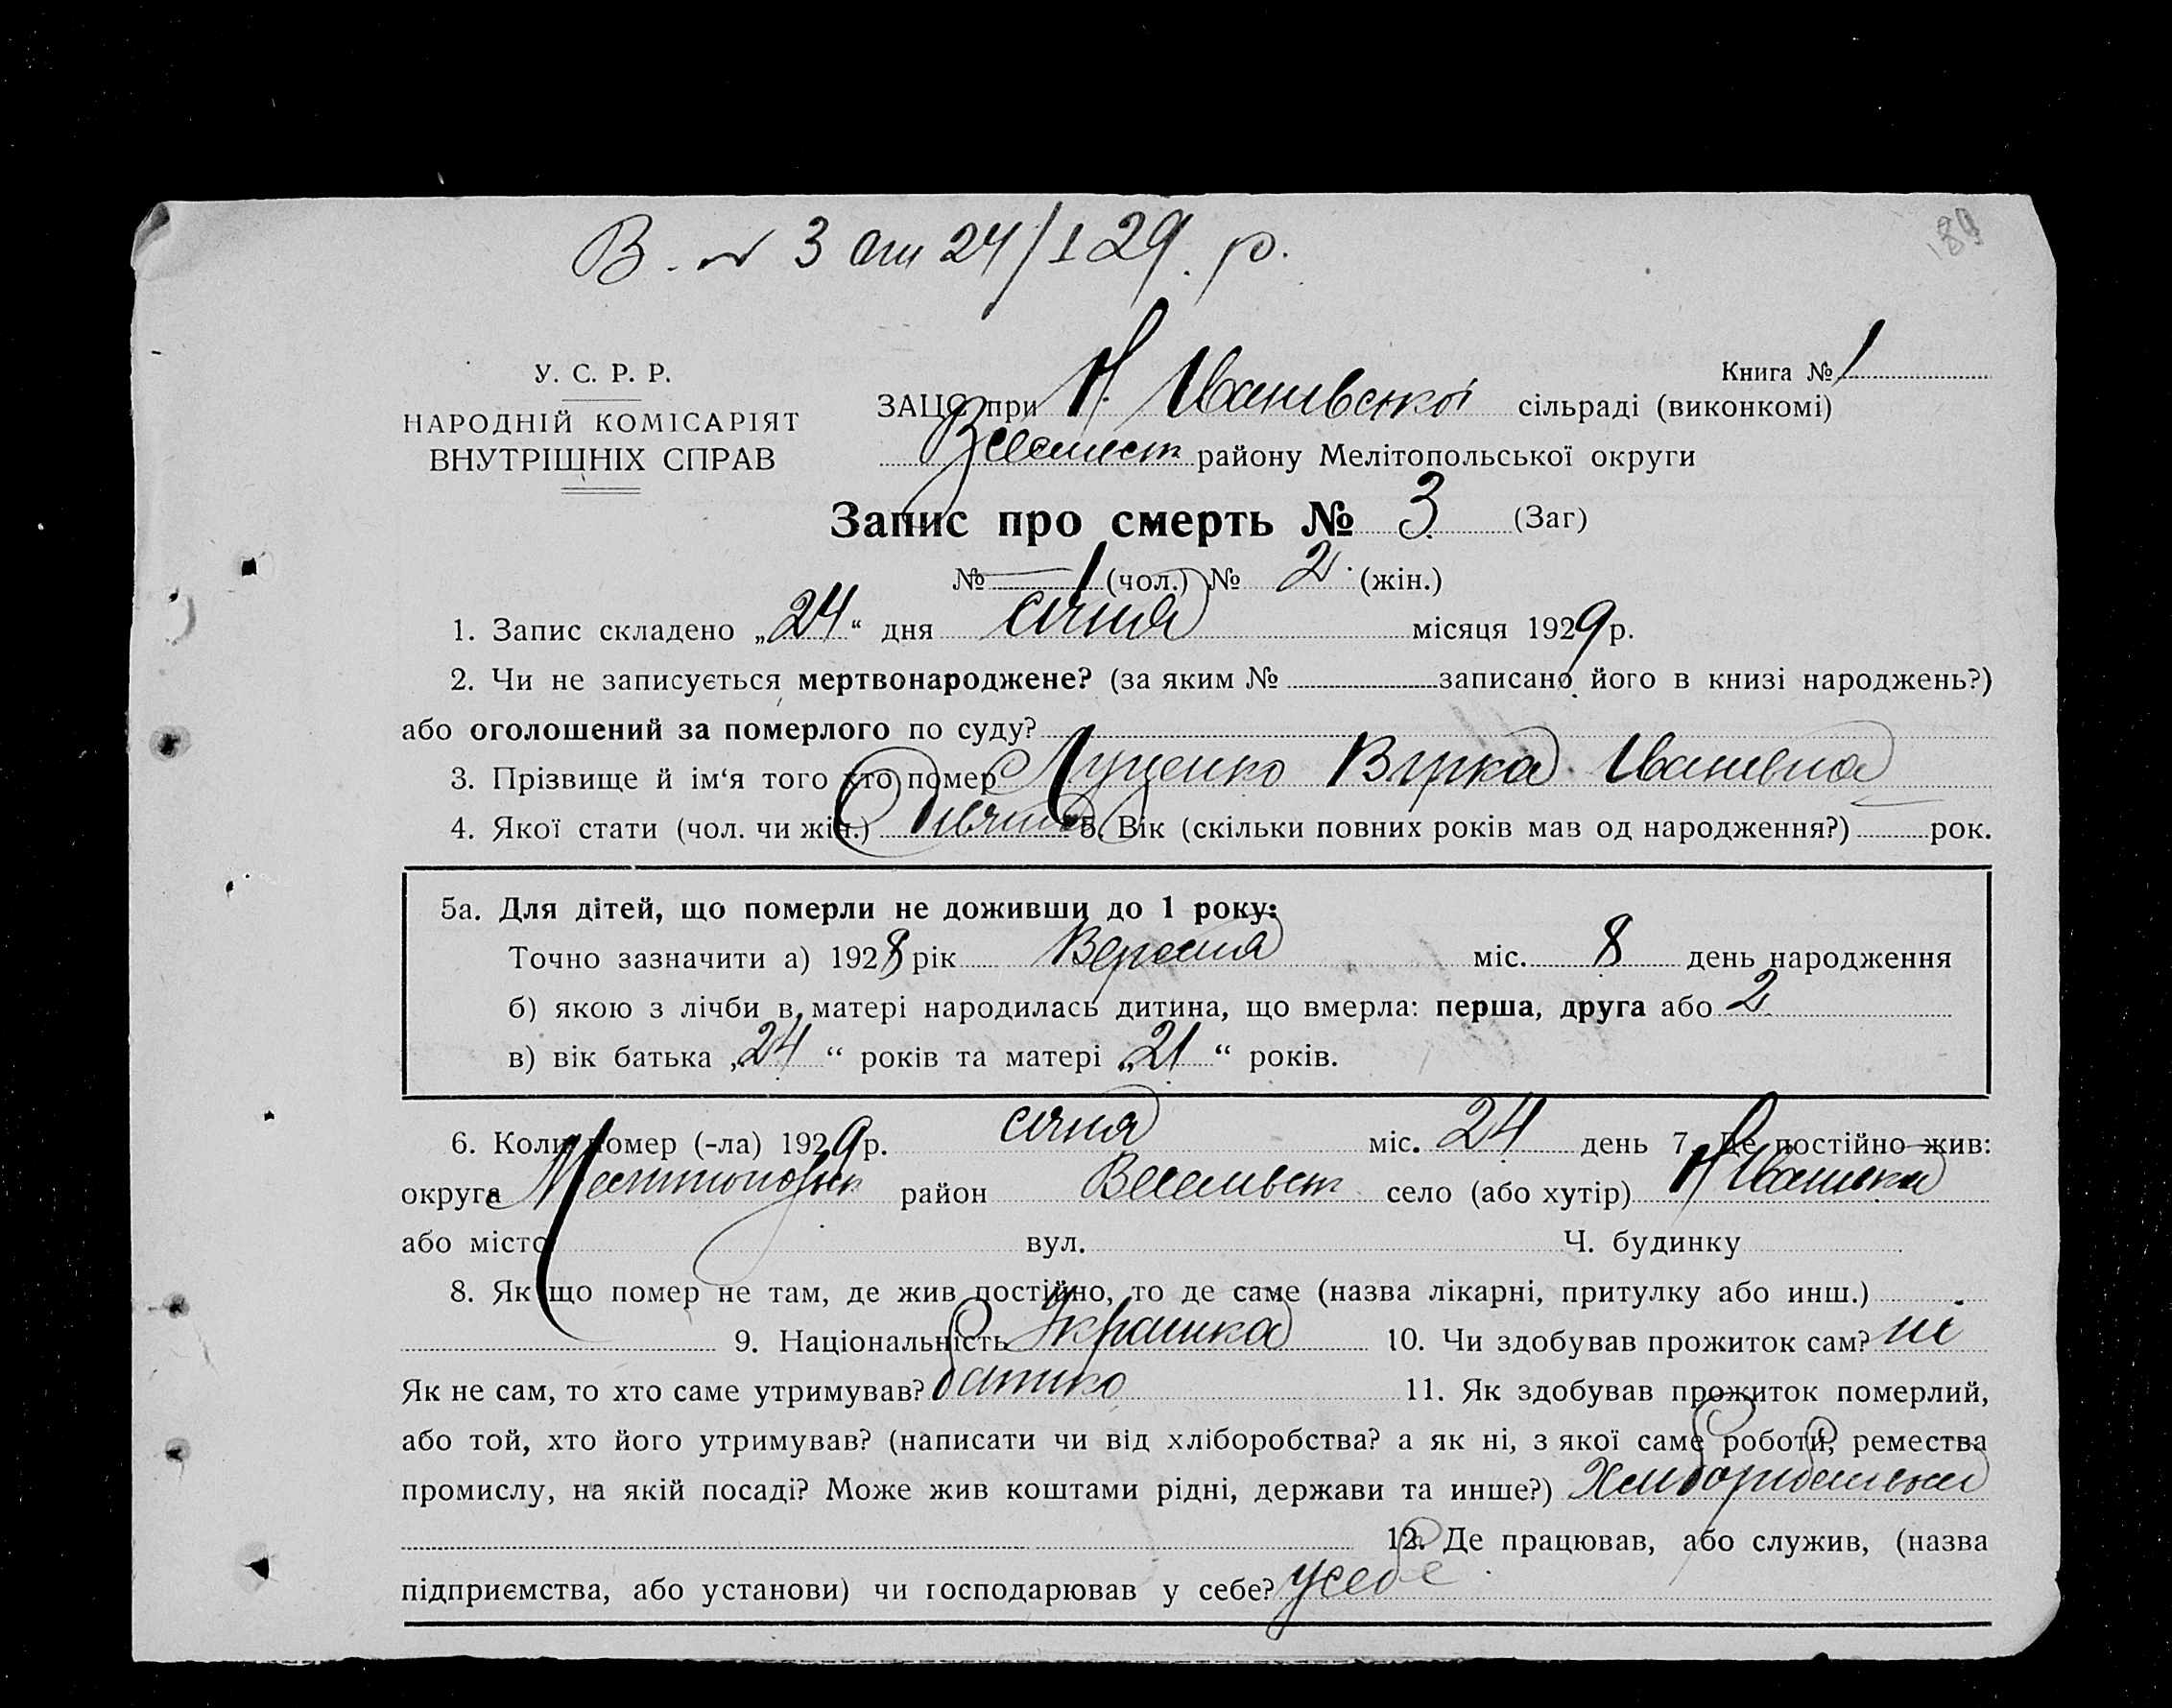 В. № 3 от 24/I 29. р.
189
У. С. Р. Р.
НАРОДНІЙ КОМІСАРІЯТ
ВНУТРІШНІХ СПРАВ
Книга № 1
ЗАЦС при Н. Іванівської сільраді (виконкомі)
району Мелітопольської округи
Запис про смерть № 3 (Заг)
№ — (чол.) № 2 (жін.)
1. Запис складено „24“ дня січня місяця 1929 р.
2. Чи не записується мертвонароджене? (за яким № записано його в книзі народжень?)
або оголошений за померлого по суду?
3. Прізвище й ім‘я того хто помер Луценко Вірка Іванівна
4. Якої стати (чол. чи жін.) 5. Вік (скільки повних років мав од народження?) рок.
5а. Для дітей, що померли не доживши до 1 року:
Точно зазначити а) 1928 рік Вересня міс. 8 день народження
б) якою з лічби в матері народилась дитина, що вмерла: перша, друга або 2
в) вік батька „24“ років та матері „21“ років.
6. Коли помер (-ла) 1929 р. січня міс. 24 день 7. Де постійно жив:
округа Мелітопольськ район Веселівськ село (або хутір) Н Іванівка
або місто вул. Ч. будинку
8. Якщо помер не там, де жив постійно, то де саме (назва лікарні, притулку або инш.)
9. Національність Українка 10. Чи здобував прожиток сам? ні
Як не сам, то хто саме утримував? батько 11. Як здобував прожиток померлий,
або той, хто його утримував? (написати чи від хліборобства? а як ні, з якої саме роботи, ремества
промислу, на якій посаді? Може жив коштами рідні, держави та инше?)
12. Де працював, або служив, (назва
підприємства, або установи) чи господарював у себе? у себе